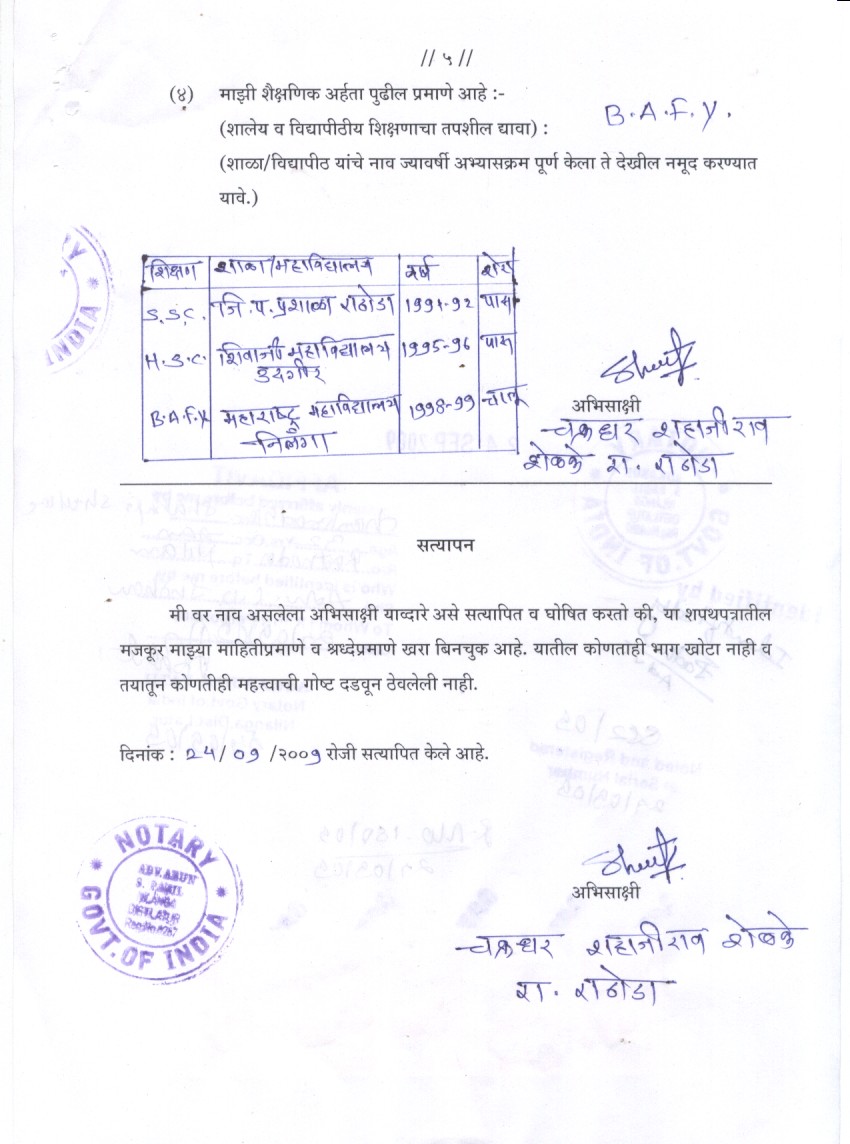 // ५ //
(४) माझी शैक्षणिक अर्हता पुढील प्रमाणे आहे :-
(शालेय व विद्यापीठीय शिक्षणाचा तपशील द्यावा) : B.A.F.Y.
(शाळा/विद्यापीठ यांचे नाव ज्यावर्षी अभ्यासक्रम पूर्ण केला ते देखील नमूद करण्यात
यावे.)
शिक्षण शाळा/महाविद्यालय वर्ष शेरा
S.S.C. जि.प.प्रशाळा राठोडा 1991-92 पास
H.S.C. शिवाजी महाविद्यालय 1995-96 पास
उदगीर
B.A.F.Y महाराष्ट्र महाविद्यालय 1998-99 चालू
निलंगा
अभिसाक्षी
चक्रधर शहाजीराव
शेळके रा. राठोडा
सत्यापन
मी वर नाव असलेला अभिसाक्षी याव्दारे असे सत्यापित व घोषित करतो की, या शपथपत्रातील
मजकूर माझ्या माहितीप्रमाणे व श्रध्देप्रमाणे खरा बिनचुक आहे. यातील कोणताही भाग खोटा नाही व
तयातून कोणतीही महत्त्वाची गोष्ट दडवून ठेवलेली नाही.
दिनांक : 24/ 09 /२००9 रोजी सत्यापित केले आहे.
NOTARY
ADV. ARUN
GOVT. OF INDIA
अभिसाक्षी
चक्रधर शहाजीराव शेळके
रा. राठोडा